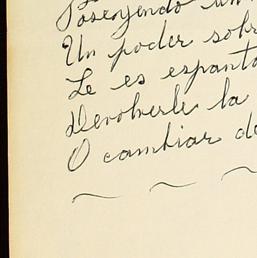 Poseyendo un
Un poder sobr
Le es espanto
Devolverle la
O cambiar de